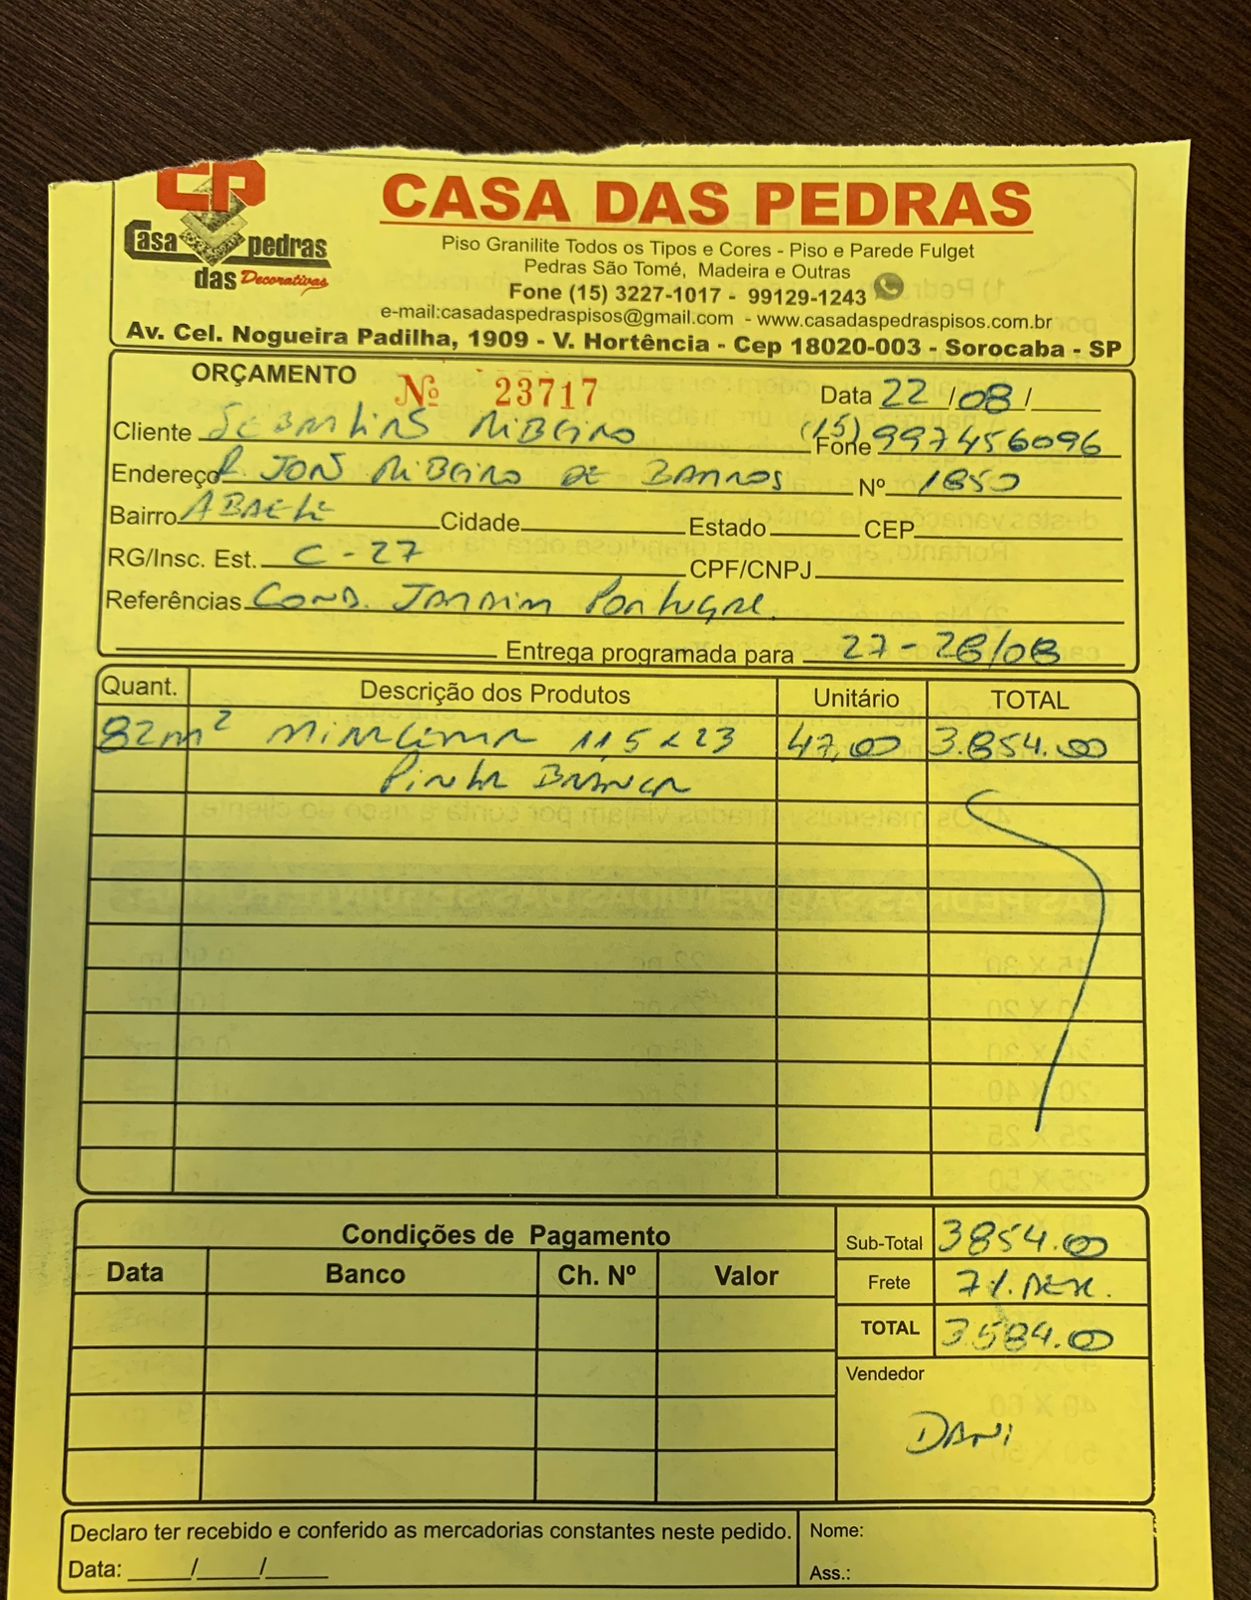 CP
Casa das pedras Decorativas
CASA DAS PEDRAS
Piso Granilite Todos os Tipos e Cores - Piso e Parede Fulget
Pedras São Tomé, Madeira e Outras
Fone (15) 3227-1017 - 99129-1243
e-mail:casadaspedraspisos@gmail.com - www.casadaspedraspisos.com.br
Av. Cel. Nogueira Padilha, 1909 - V. Hortência - Cep 18020-003 - Sorocaba - SP
ORÇAMENTO Nº 23717 Data 22/08/
Cliente Ribeiro Fone (15) 997456096
Endereço R Ribeiro de Barros Nº 1850
Bairro Abaeté Cidade Estado CEP
RG/Insc. Est. C-27 CPF/CNPJ
Referências Cond. Jardim Portugal.
Entrega programada para 27-28/08
Quant. Descrição dos Produtos Unitário TOTAL
82m² Miracema 11,5x23 47,00 3.854.00
Pinta Branca
Condições de Pagamento
Data Banco Ch. Nº Valor
Sub-Total 3854.00
Frete 7%
TOTAL 3.584.00
Vendedor
Dani
Declaro ter recebido e conferido as mercadorias constantes neste pedido.
Data: ____/____/____
Nome:
Ass.: